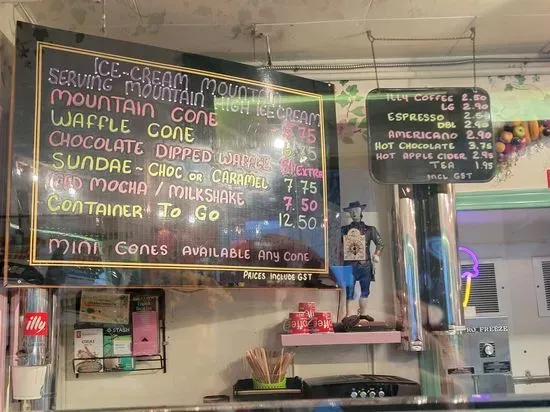 ICE-CREAM MOUNTAIN
SERVING MOUNTAIN HIGH ICE CREAM
MOUNTAIN CONE
WAFFLE CONE
CHOCOLATE DIPPED WAFFLE $1 EXTRA
SUNDAE - CHOC OR CARAMEL 7.75
ICED MOCHA / MILKSHAKE 7.50
CONTAINER TO GO 12.50
MINI CONES AVAILABLE ANY CONE
PRICES INCLUDE GST
ILLY COFFEE 2.50
LG 2.90
ESPRESSO 2.50
DBL 2.90
AMERICANO 2.90
HOT CHOCOLATE 3.75
HOT APPLE CIDER 2.95
TEA 1.95
INCL GST
illy
STASH
PRO FREEZE